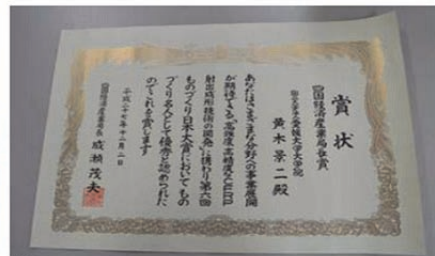 賞状
四国経済産業局長賞
国立大学法人愛媛大学大学院
黄木景二殿
あなたはさまざまな分野への事業展開
が期待できる「高強度高精度な
射出成形技術の開発」に携わり第六回
ものづくり日本大賞においてもの
づくり名人として優秀と認められた
のでこれを賞します
平成二十七年十二月二日
四国経済産業局長 成瀬茂夫